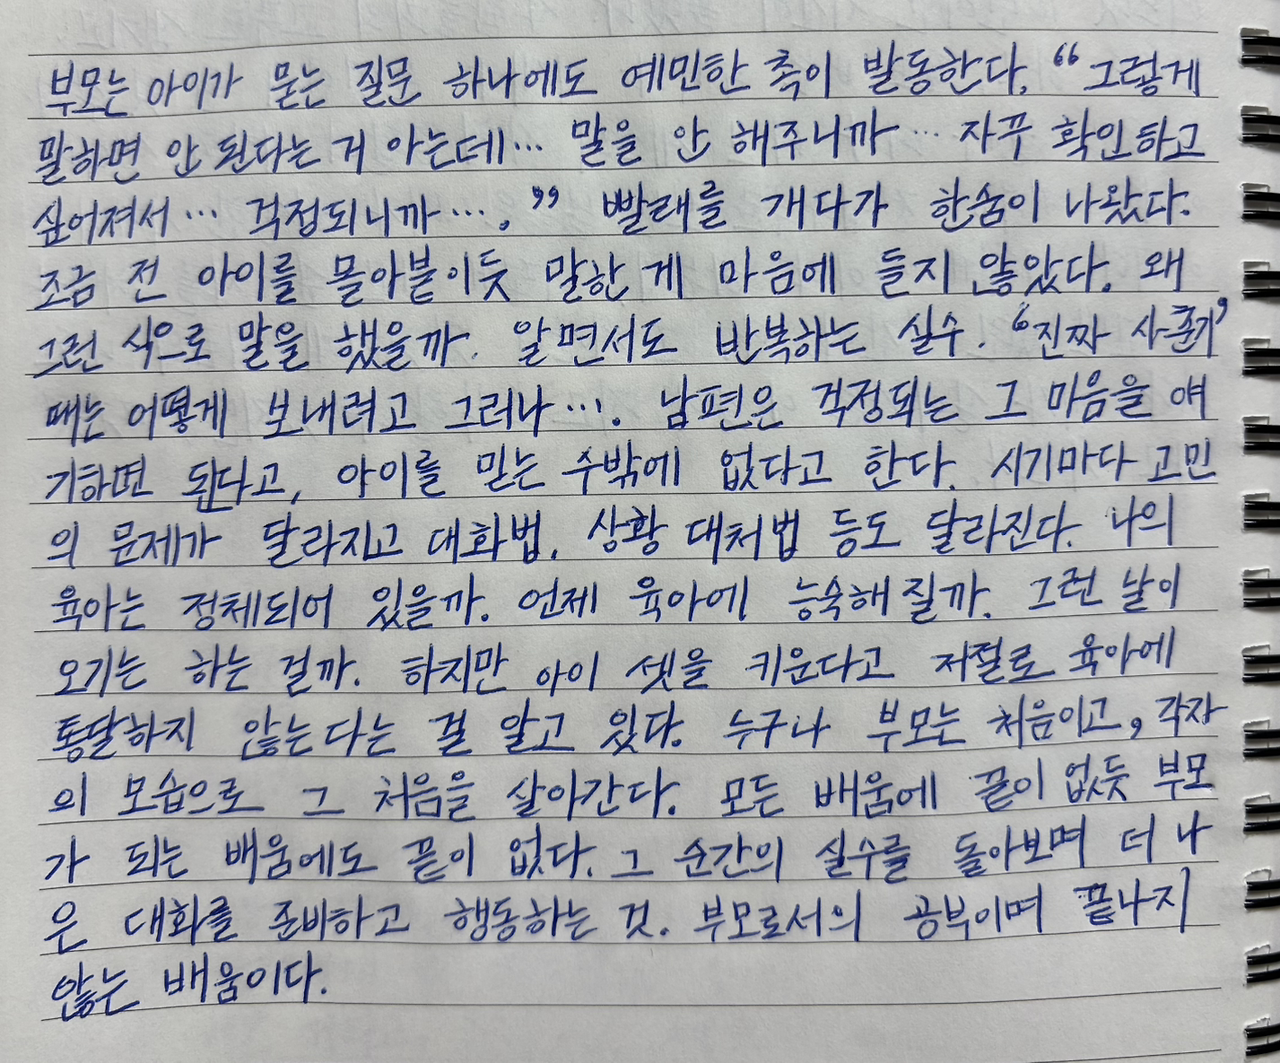 부모는 아이가 묻는 질문 하나에도 예민한 촉이 발동한다. “그렇게
말하면 안 된다는 거 아는데… 말을 안 해주니까… 자꾸 확인하고
싶어져서… 걱정되니까…. ” 빨래를 개다가 한숨이 나왔다.
조금 전 아이를 몰아붙이듯 말한 게 마음에 들지 않았다. 왜
그런 식으로 말을 했을까. 알면서도 반복하는 실수. ‘진짜 사춘기’
때는 어떻게 보내려고 그러나…. 남편은 걱정되는 그 마음을 얘
기하면 된다고, 아이를 믿는 수밖에 없다고 한다. 시기마다 고민
의 문제가 달라지고 대화법, 상황 대처법 등도 달라진다. 나의
육아는 정체되어 있을까. 언제 육아에 능숙해질까. 그런 날이
오기는 하는 걸까. 하지만 아이 셋을 키운다고 저절로 육아에
통달하지 않는다는 걸 알고 있다. 누구나 부모는 처음이고, 각자
의 모습으로 그 처음을 살아간다. 모든 배움에 끝이 없듯 부모
가 되는 배움에도 끝이 없다. 그 순간의 실수를 돌아보며 더 나
은 대화를 준비하고 행동하는 것. 부모로서의 공부이며 끝나지
않는 배움이다.